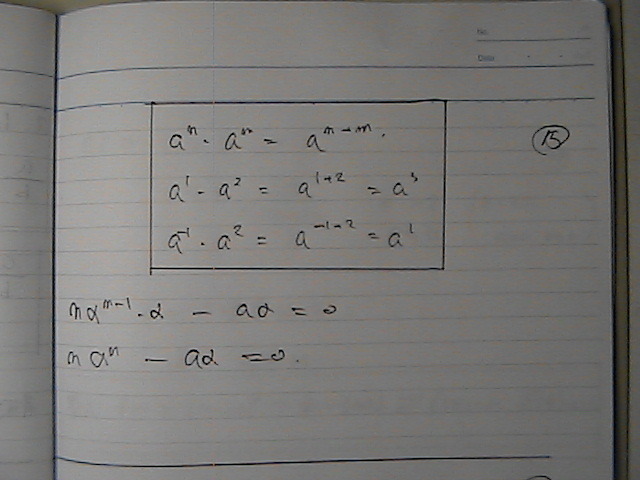 No.
Date
aⁿ · aᵐ = aⁿ⁺ᵐ.
⑮
a¹ · a² = a¹⁺² = a³
a⁻¹ · a² = a⁻¹⁺² = a¹
nαⁿ⁻¹ · α − aα = 0
nαⁿ − aα = 0.